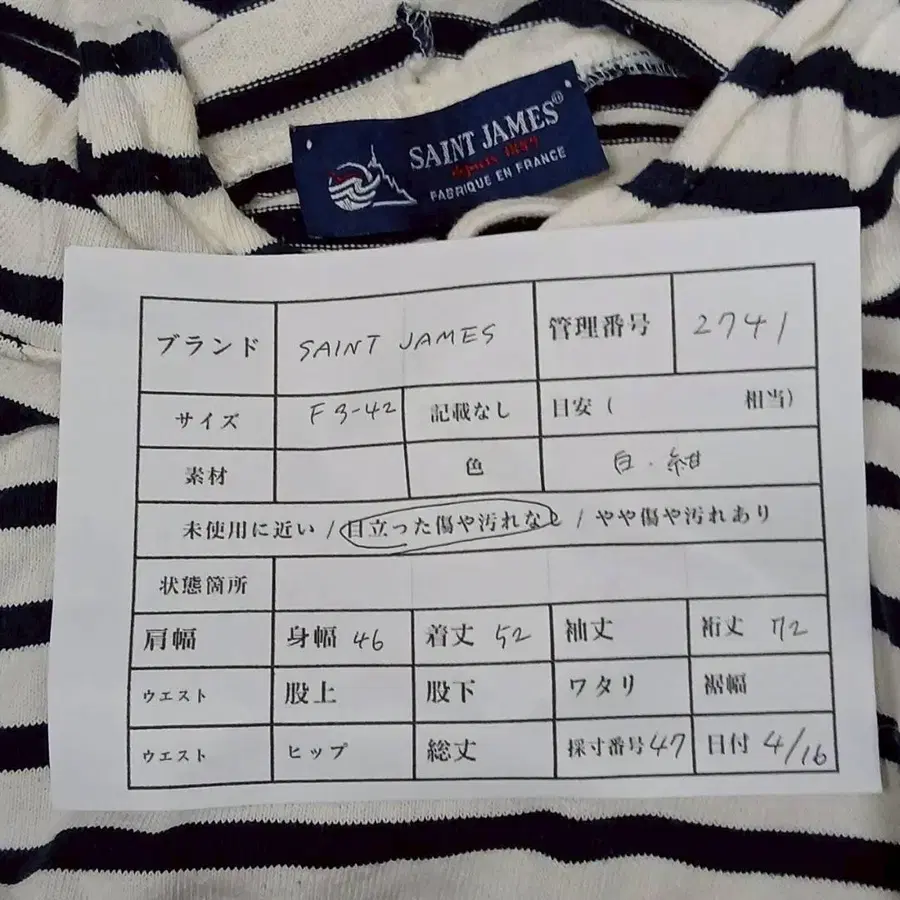 SAINT JAMES®
depuis 1889
FABRIQUE EN FRANCE
ブランド SAINT JAMES 管理番号 2741
サイズ F3-42 記載なし 目安 ( 相当)
素材 色 白・紺
未使用に近い / 目立った傷や汚れなし / やや傷や汚れあり
状態箇所
肩幅 身幅 46 着丈 52 袖丈 裄丈 72
ウエスト 股上 股下 ワタリ 裾幅
ウエスト ヒップ 総丈 採寸番号47 日付 4/16